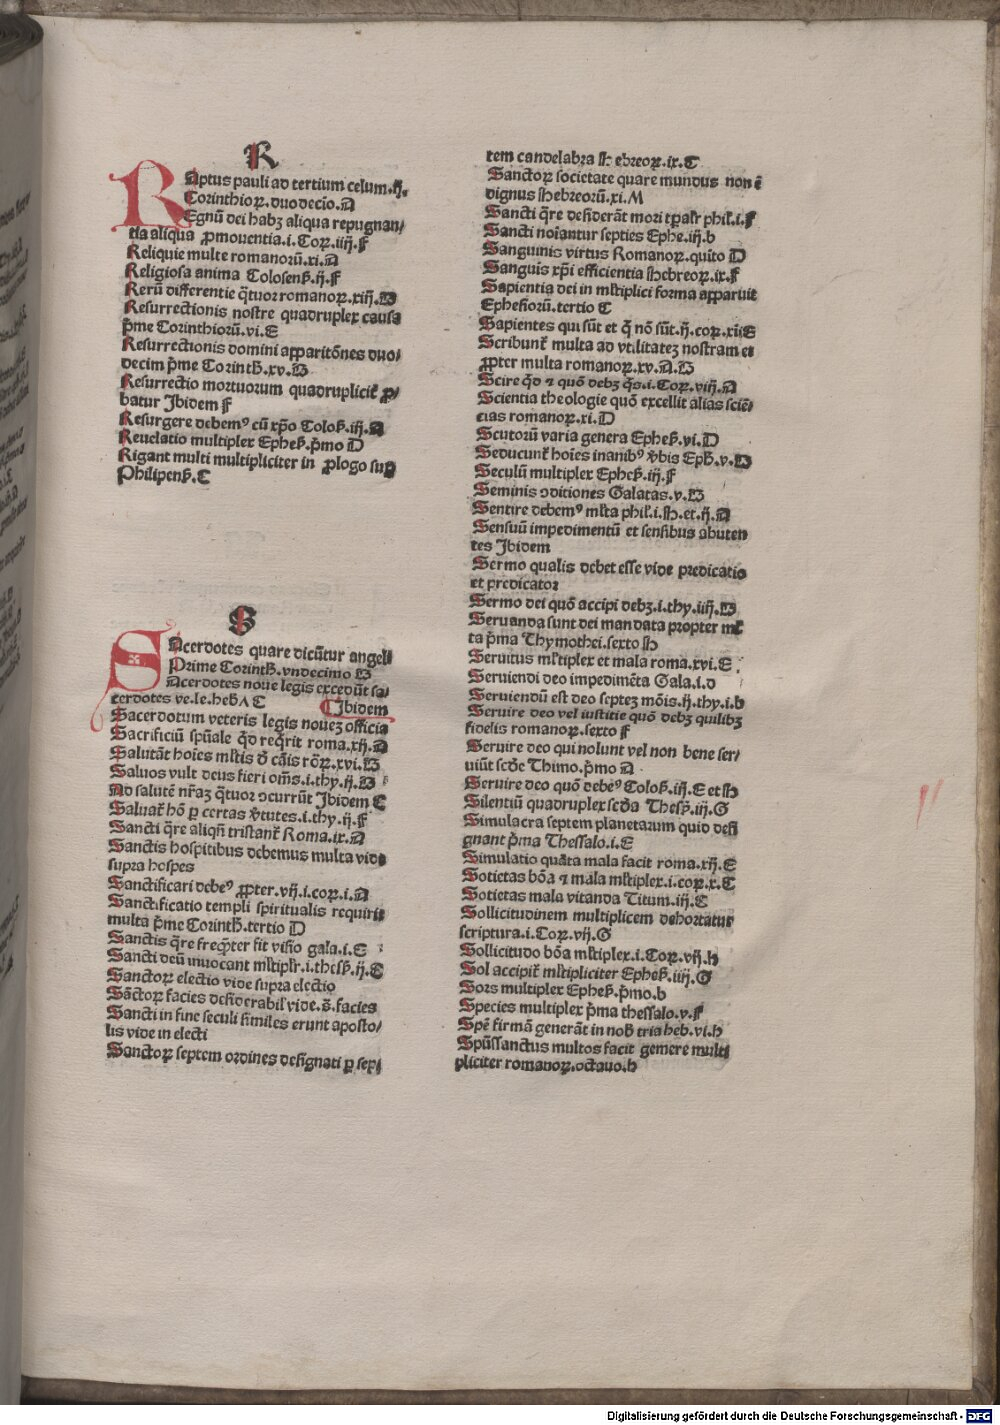 R
RAptus pauli ad tertium celum.ij.
Corinthioꝝ.duodecio.A
Regnū dei habꝫ aliqua repugnan/
tia aliqua ꝓmouentia.i.Coꝝ.iiij.F
Reliquie multe romanorū.xi.A
Religiosa anima Colosenß.ij.F
Rerū differentie q̄tuor romanoꝝ.xiij.B
Resurrectionis nostre quadruplex causa
p̄me Corinthiorū.vi.E
Resurrectionis domini apparitōnes duo/
decim p̄me Corintħ.xv.B
Resurrectio mortuorum quadrupliciť ꝓ/
batur Ibidem F
Resurgere debemꝰ cū xp̄o Coloß.iij.A
Reuelatio multiplex Epheß.p̄mo D
Rigant multi multipliciter in ꝓlogo suꝑ
Philipenß.C
S
SAcerdotes quare dicūtur angeli
Prime Corintħ.vndecimo B
Sacerdotes noue legis excedūt sa/
cerdotes ve.le.heb.x C Ibidem
Sacerdotum veteris legis nouez officia
Sacrificiū spūale q̄d req̄rit roma.xij.A
Salutāt hoīes ml̄tis ꝺ̄ cāis rōꝝ.xvi.B
Saluos vult deus fieri om̄s.i.thy.ij.B
Ad salutē nr̄az q̄tuor ɔcurrūt Ibidem C
Saluať hō ꝑ certas v̄tutes.i.thy.ij.F
Sancti q̄re aliqn̄ tristanť Roma.ix.A
Sanctis hospitibus debemus multa vide
supra hospes
Sanctificari debeꝰ ꝓpter.vij.i.coꝝ.i.A
Sanctificatio templi spiritualis requirit
multa p̄me Corintħ.tertio D
Sanctis q̄re freq̄nter fit visio gala.i.E
Sancti deū inuocant ml̄tiplr̄.i.thesß.ij.C
Sanctoꝝ electio vide supra electio
Sāctoꝝ facies desiderabil' vide.s̄.facies
Sancti in fine seculi similes erunt aposto/
lis vide in electi
Sanctoꝝ septem ordines designati ꝑ sep/
tem candelabra Hebreoꝝ.ix.C
Sanctoꝝ societate quare mundus non ē
dignus Hebreorū.xi.M
Sancti q̄re desiderāt mori tꝑalr̄ phil'.i.F
Sancti noīantur septies Ephe.iij.b
Sanguinis virtus Romanoꝝ.quito D
Sanguis xp̄i efficientia Hebreoꝝ.ix.F
Sapientia dei in ml̄tiplici forma apparuit
Ephesiorū.tertio C
Sapientes qui sūt et q̄ nō sūt.ij.coꝝ.xi E
Scribunť multa ad vtilitatez nostram et
ꝓpter multa romanoꝝ.xv.A.B
Scire q̄d ⁊ quō debꝫ q̄s.i.Coꝝ.viij.A
Scientia theologie quō excellit alias sciē/
cias romanoꝝ.xi.D
Scutorū varia genera Epheß.vi.D
Seducunť hoīes inanibꝰ v̄bis Epß.v.B
Seculū multiplex Epheß.iij.F
Seminis ɔditiones Galatas.v.B
Sentire debemꝰ ml̄ta phil'.i.H.et.ij.A
Sensuū impedimentū et sensibus abuten
tes Ibidem
Sermo qualis debet esse vide predicatio
et predicator
Sermo dei quō accipi debꝫ.i.thy.iiij.B
Seruanda sunt dei mandata propter ml̄
ta p̄ma Thymothei.sexto H
Seruitus ml̄tiplex et mala roma.xvi.E
Seruiendi deo impedimēta Gala.i.d
Seruiendū est deo septez mōis.ij.thy.i.b
Seruire deo vel iustitie quō debꝫ quilibꝫ
fidelis romanoꝝ.sexto F
Seruire deo qui nolunt vel non bene ser/
uiūt scd̄e Thimo.p̄mo A
Seruire deo quō debeꝰ Coloß.iij.E et H
Silentiū quadruplex scd̄a Thesß.iij.G
Simulacra septem planetarum quid desi
gnant p̄ma Thessalo.i.E
Simulatio quāta mala facit roma.xij.E
Sotietas bōa ⁊ mala ml̄tiplex.i.coꝝ.x.C
Sotietas mala vitanda Titum.iij.C
Sollicitudinem multiplicem dehortatur
scriptura.i.Coꝝ.vij.G
Sollicitudo bōa ml̄tiplex.i.Coꝝ.vij.h
Sol accipiť ml̄tipliciter Epheß.iiij.G
Sors multiplex Epheß.p̄mo.b
Species multiplex p̄ma thessalo.v.F
Spē firmā generāt in nob' tria heb.vi.h
Spūssanctus multos facit gemere multi
pliciter romanoꝝ.octauo.h
Digitalisierung gefördert durch die Deutsche Forschungsgemeinschaft - DFG